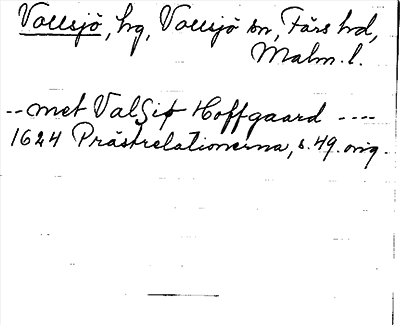 Vollsjö, hg, Vollsjö sn, Färs hd,
Malm. l.
-- met Valsiø Hoffgaard ----
1624 Prästrelationerna, s. 49. orig.